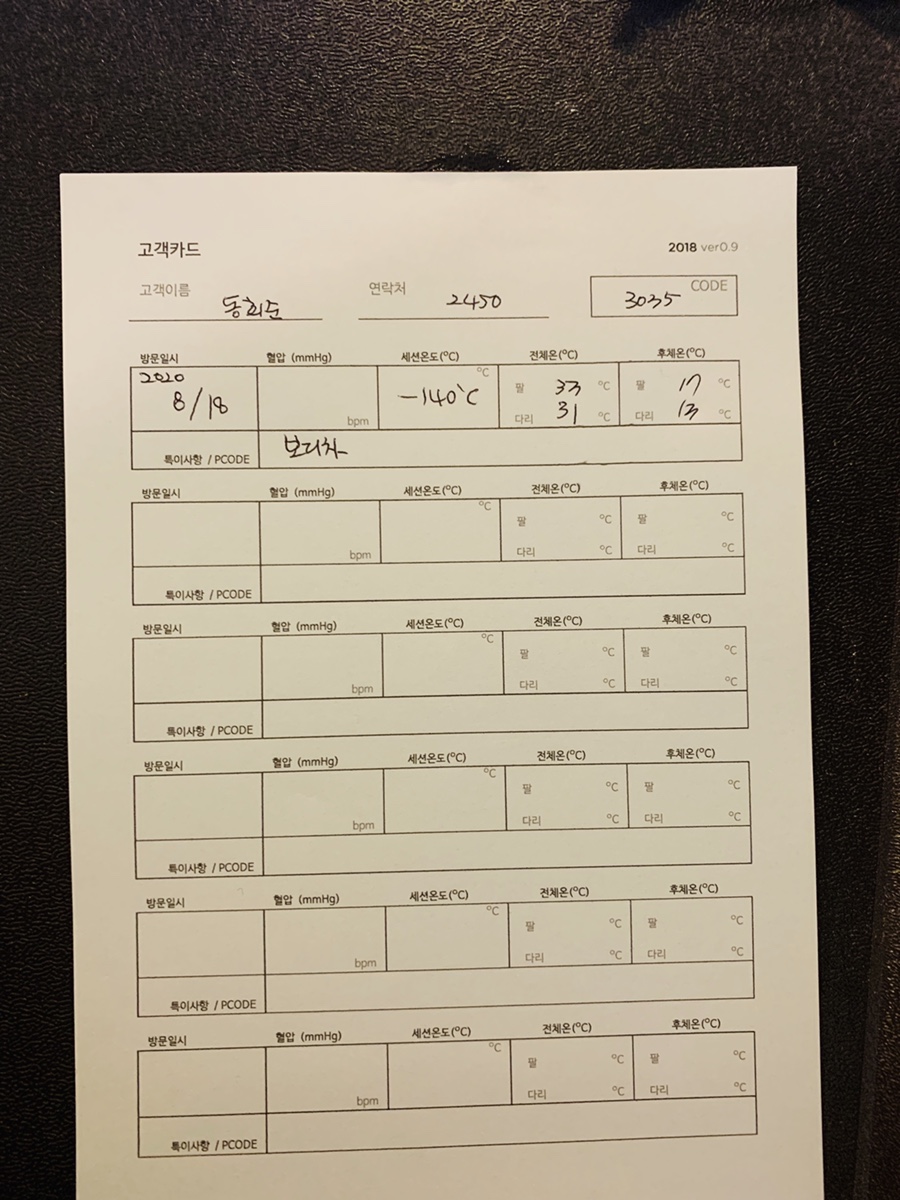 고객카드 2018 ver0.9
고객이름 동희준 연락처 2450 3035 CODE
방문일시 혈압 (mmHg) 세션온도(℃) 전체온(℃) 후체온(℃)
2020 ℃ 팔 33 ℃ 팔 17 ℃
8/18 bpm -140℃ 다리 31 ℃ 다리 13 ℃
특이사항 / PCODE 보리차
방문일시 혈압 (mmHg) 세션온도(℃) 전체온(℃) 후체온(℃)
℃ 팔 ℃ 팔 ℃
bpm 다리 ℃ 다리 ℃
특이사항 / PCODE
방문일시 혈압 (mmHg) 세션온도(℃) 전체온(℃) 후체온(℃)
℃ 팔 ℃ 팔 ℃
bpm 다리 ℃ 다리 ℃
특이사항 / PCODE
방문일시 혈압 (mmHg) 세션온도(℃) 전체온(℃) 후체온(℃)
℃ 팔 ℃ 팔 ℃
bpm 다리 ℃ 다리 ℃
특이사항 / PCODE
방문일시 혈압 (mmHg) 세션온도(℃) 전체온(℃) 후체온(℃)
℃ 팔 ℃ 팔 ℃
bpm 다리 ℃ 다리 ℃
특이사항 / PCODE
방문일시 혈압 (mmHg) 세션온도(℃) 전체온(℃) 후체온(℃)
℃ 팔 ℃ 팔 ℃
bpm 다리 ℃ 다리 ℃
특이사항 / PCODE